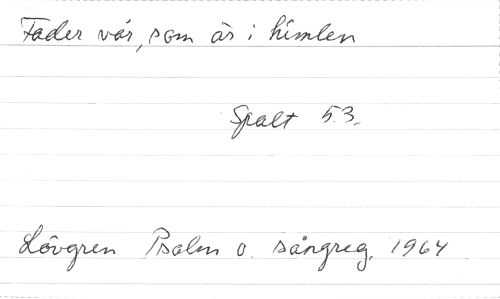 Fader vår, som är i himlen
Spalt 53.
Lövgren Psalm o. sångreg. 1964